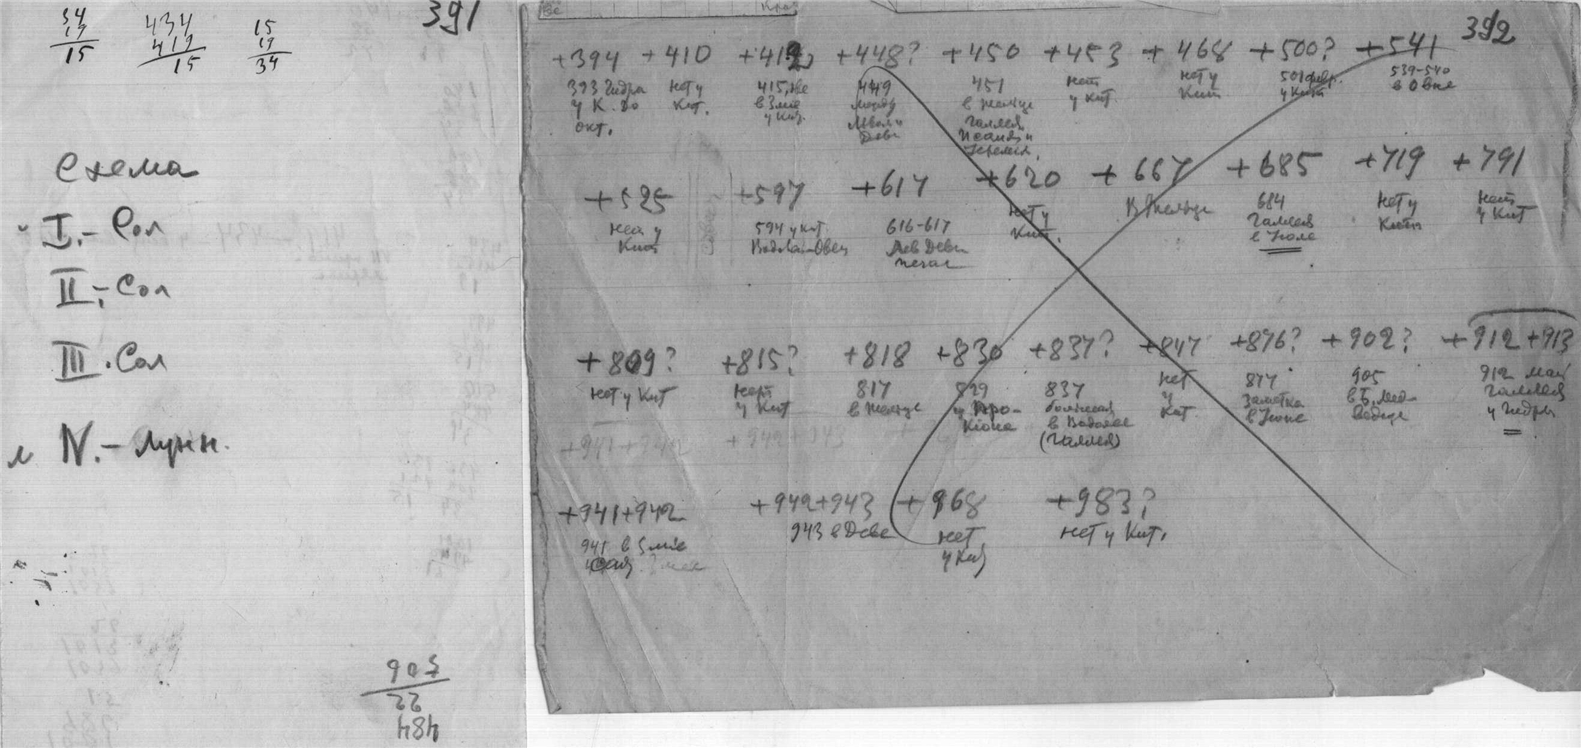 391
34
19
15
434
419
15
15
19
34
Схема
I. - Сол
II. - Сол
III. Сол
IV. - Лунн.
905
22
484
392
+394 +410 +412 +448? +450 +453 +468 +500? +541
393 Гидра у К. до окт.
нет у Кит.
415, две в Змее у Кит.
449 между Львом и Дев
451 в Жельце Галлея
нет у Кит.
нет у Кит
501 февр. у Кит.
539-540 в Овне
+525 +597 +617 +620 +667 +685 +719 +791
нет у Кит
594 у Кит.
616-617 Лев Дева
нет у Кит.
В Жельце
684 Галлея в Июле
нет у Кит
нет у Кит
+809? +815? +818 +830 +837? +847 +876? +902? +912 +913
нет у Кит
нет у Кит
817 в Жельце
829 у Прокиона
837 большая в Водолее (Галлея)
нет у Кит.
877 заметка в Июне
905 в Б. Медведице
912 май Галлея у Гидры
+941+942 +942+943
+941+942 +942+943 +968 +983?
941 в Змее
943 в Деве
нет у Кит
нет у Кит.